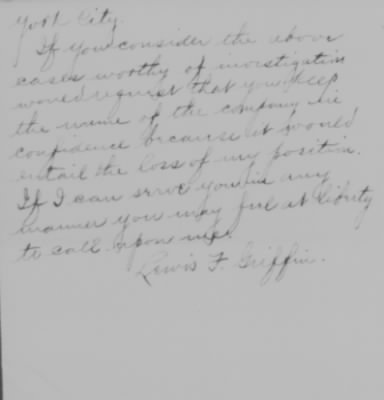 York City.
If you consider the above
cases worthy of investigation
would request that you keep
the name of the company in
confidence because it would
entail the loss of my position.
If I can serve you in any
manner you may feel at liberty
to call upone me.
Lewis F. Griffin.